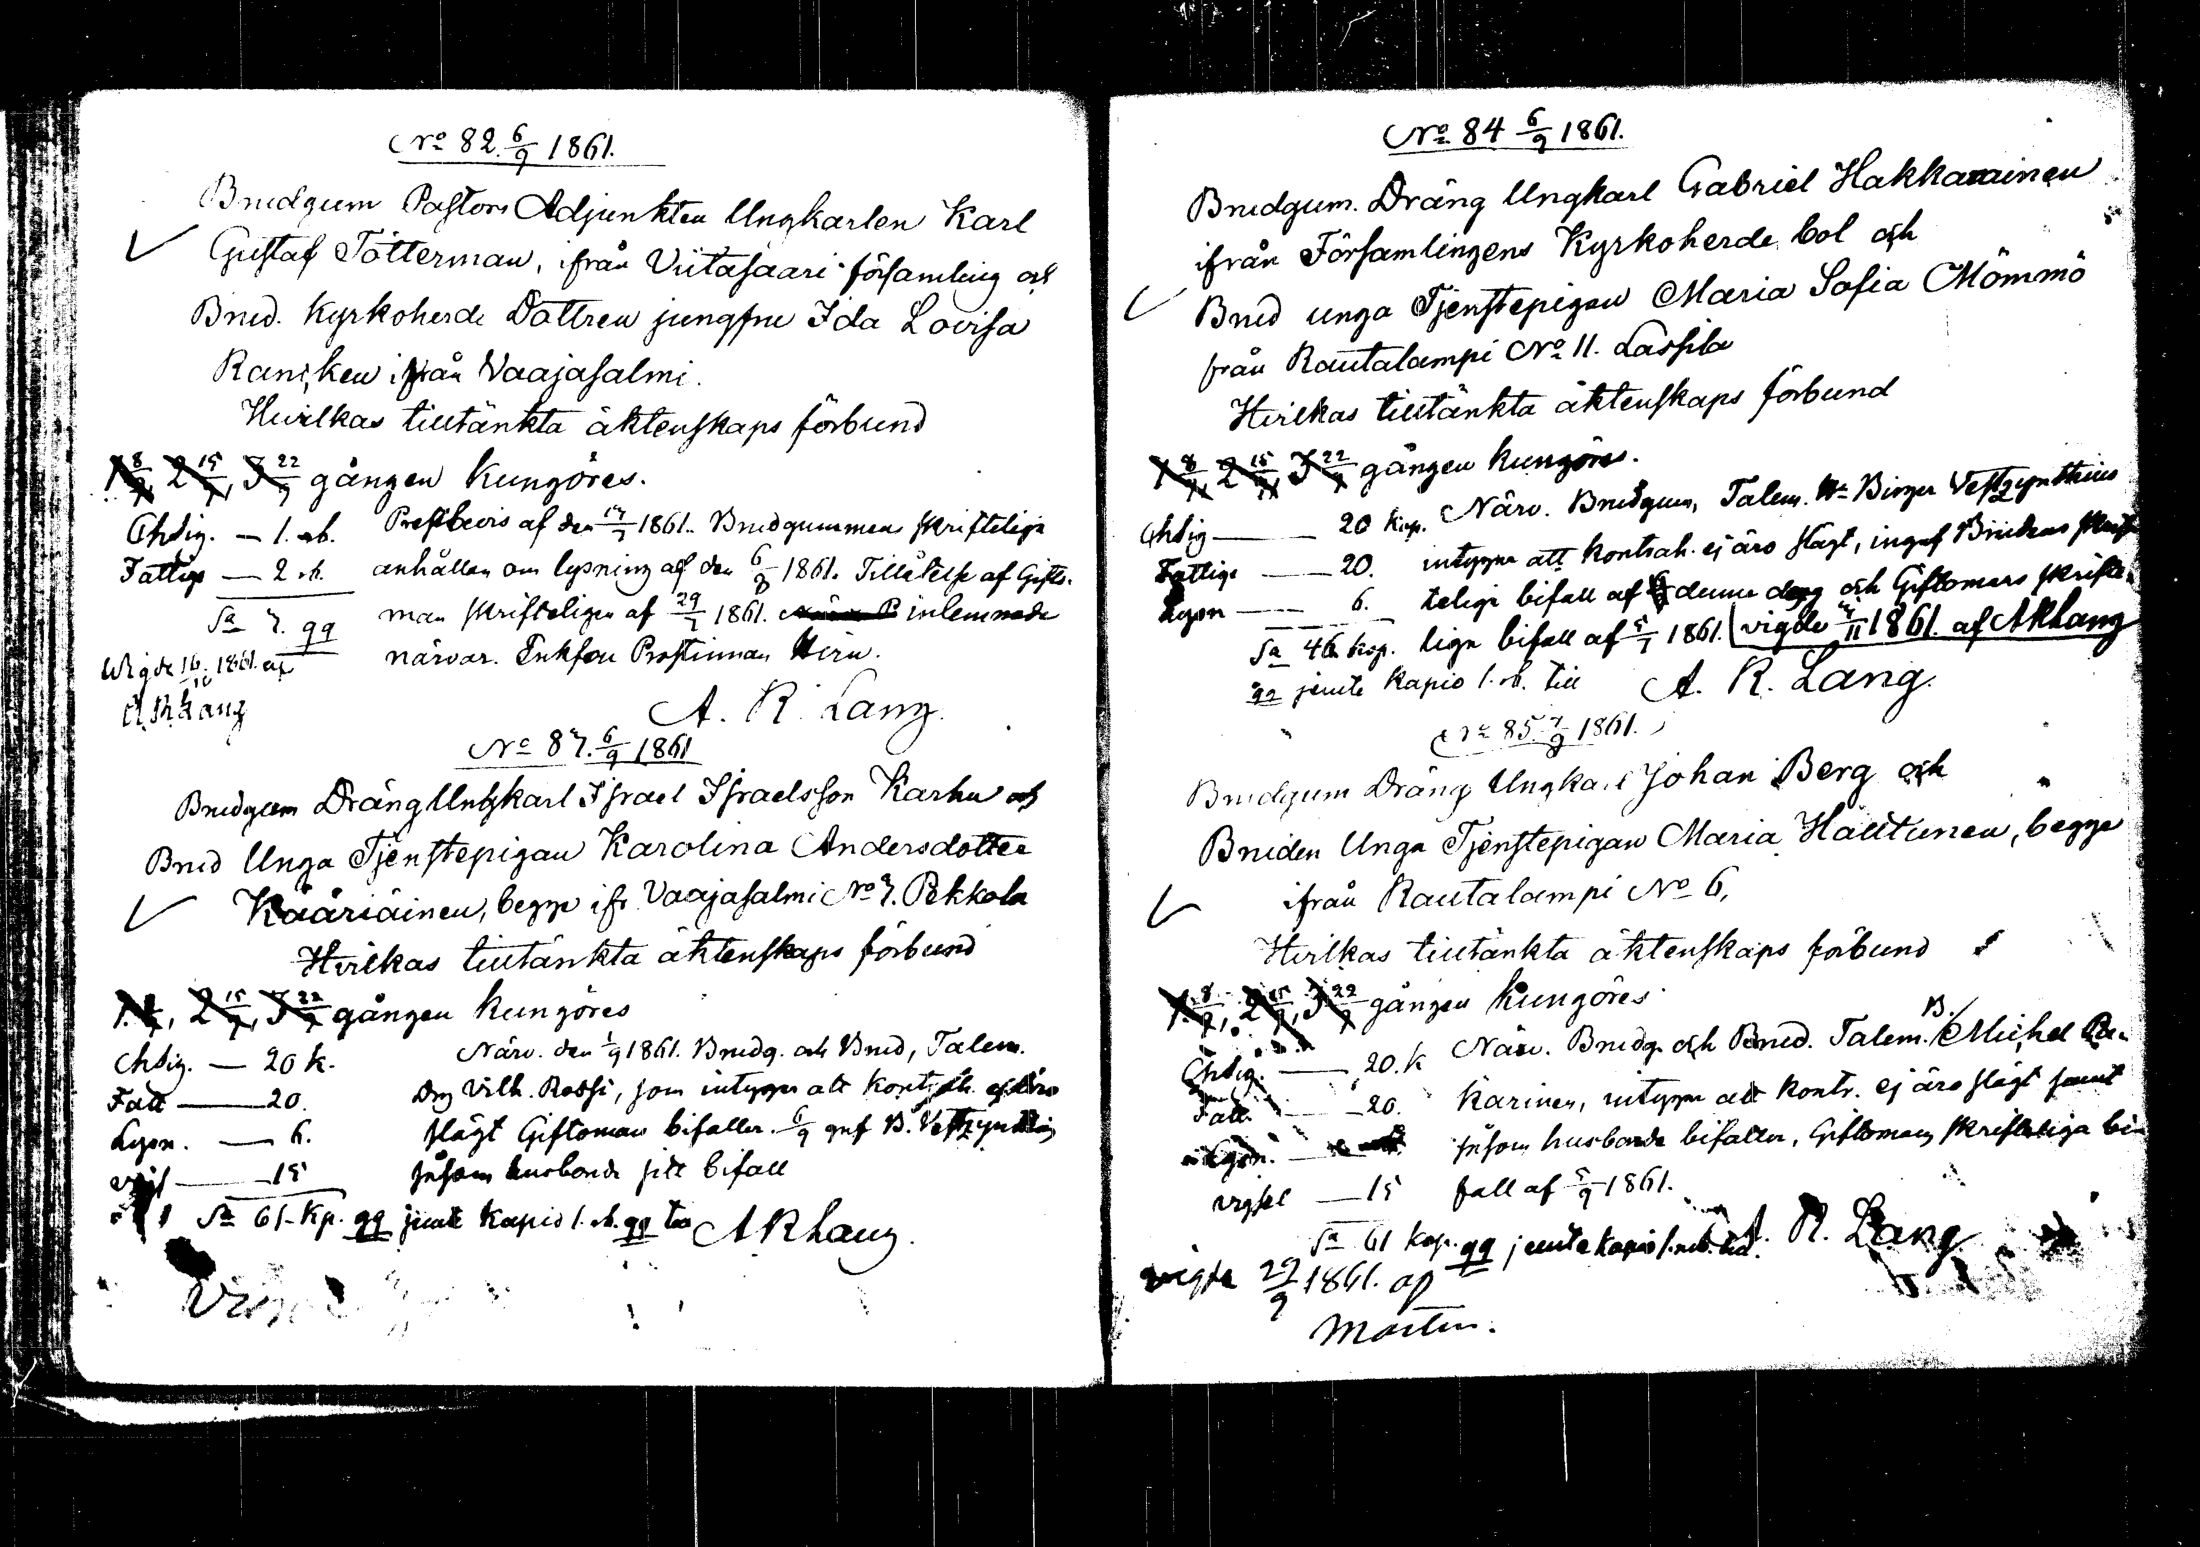 No 82. 6/9 1861.
Brudgum Pastors Adjunkten Ungkarlen Karl
Gustaf Tötterman, ifrån Viitasaari församling och
Brud. Kyrkoherde Dottren jungfru Ida Lovisa
Ranicken ifrån Vaajasalmi.
Hvilkas tilltänkta äktenskaps förbund
1 8/9, 2 15/9, 3 22/9 gången kungöres.
Chdig. — 1. rb. Prestbevis af den 1861. Brudgummens skriftelige
Fattige — 2 rb. anhållan om lysning af den 1861. Tillåtelse af Gifto-
Sa 3. qq man skrifteligen af 1861. inlemnade
närvar. Enkefru Prostinnan
Wigde 1861. af
A R Lang
A. R. Lang.
No 83. 6/9 1861
Brudgum Dräng Ungkarl Israel Israelsson Karhu och
Brud Unga Tjenstepigan Karolina Andersdotter
Kääriäinen, begge ifr. Vaajasalmi No 3. Pekkola
Hvilkas tilltänkta äktenskaps förbund
1. 8/9, 2 15/9, 3 22/9 gången kungöres
Chdig. — 20 k. Närv. den 1861. Brudg. och Brud, Talem.
Fatt — 20. Drg Vilh. Rossi, som intygar att kontrah. ej äro
Lysn. — 6. slägt Giftoman bifaller. 6/9 gnf B. Vestzynthius
vigs — 15 såsom husbonde sitt bifall
Sa 61 Kp. qq jemte kapio 1. rb. qq A R Lang.
No 84 6/9 1861.
Brudgum. Dräng Ungkarl Gabriel Hakkarainen
ifrån Församlingens Kyrkoherde bol och
Brud unga Tjenstepigan Maria Sofia Mömmö
från Rautalampi No 11. Lassila
Hvilkas tilltänkta äktenskaps förbund
1 8/9, 2 15/9, 3 22/9 gången kungöres.
Chdig — 20 kop. Närv. Brudgum, Talem. Hr Birger Vestzynthius
Fattige — 20. intygar att kontrah. ej äro slägt, ingaf Brudens skrift-
Lysn — 6. telige bifall af denne dag och Giftomans skrifte-
Sa 46 kop. lige bifall af 1861. vigde 1861. af A R Lang
qq jemte kapio 1. rb. till A. R. Lang.
No 85 7/9 1861.
Brudgum Dräng Ungkarl Johan Berg och
Bruden Unga Tjenstepigan Maria Hautunen, begge
ifrån Rautalampi No 6,
Hvilkas tilltänkta äktenskaps förbund
1. 8/9, 2 15/9, 3 22/9 gången kungöres
Chdig. — 20. k Närv. Brudg. och Brud. Talem. B. Michel
Fatt. — 20. karinen, intygar att kontr. ej äro slägt samt
Lysn. såsom husbonde bifaller, Giftomans skrifteliga bi-
vigsel — 15 fall af 1861.
Sa 61 kop. qq jemte kapio 1. rub. till. A. R. Lang
vigde 29/9 1861. af
Mortin.